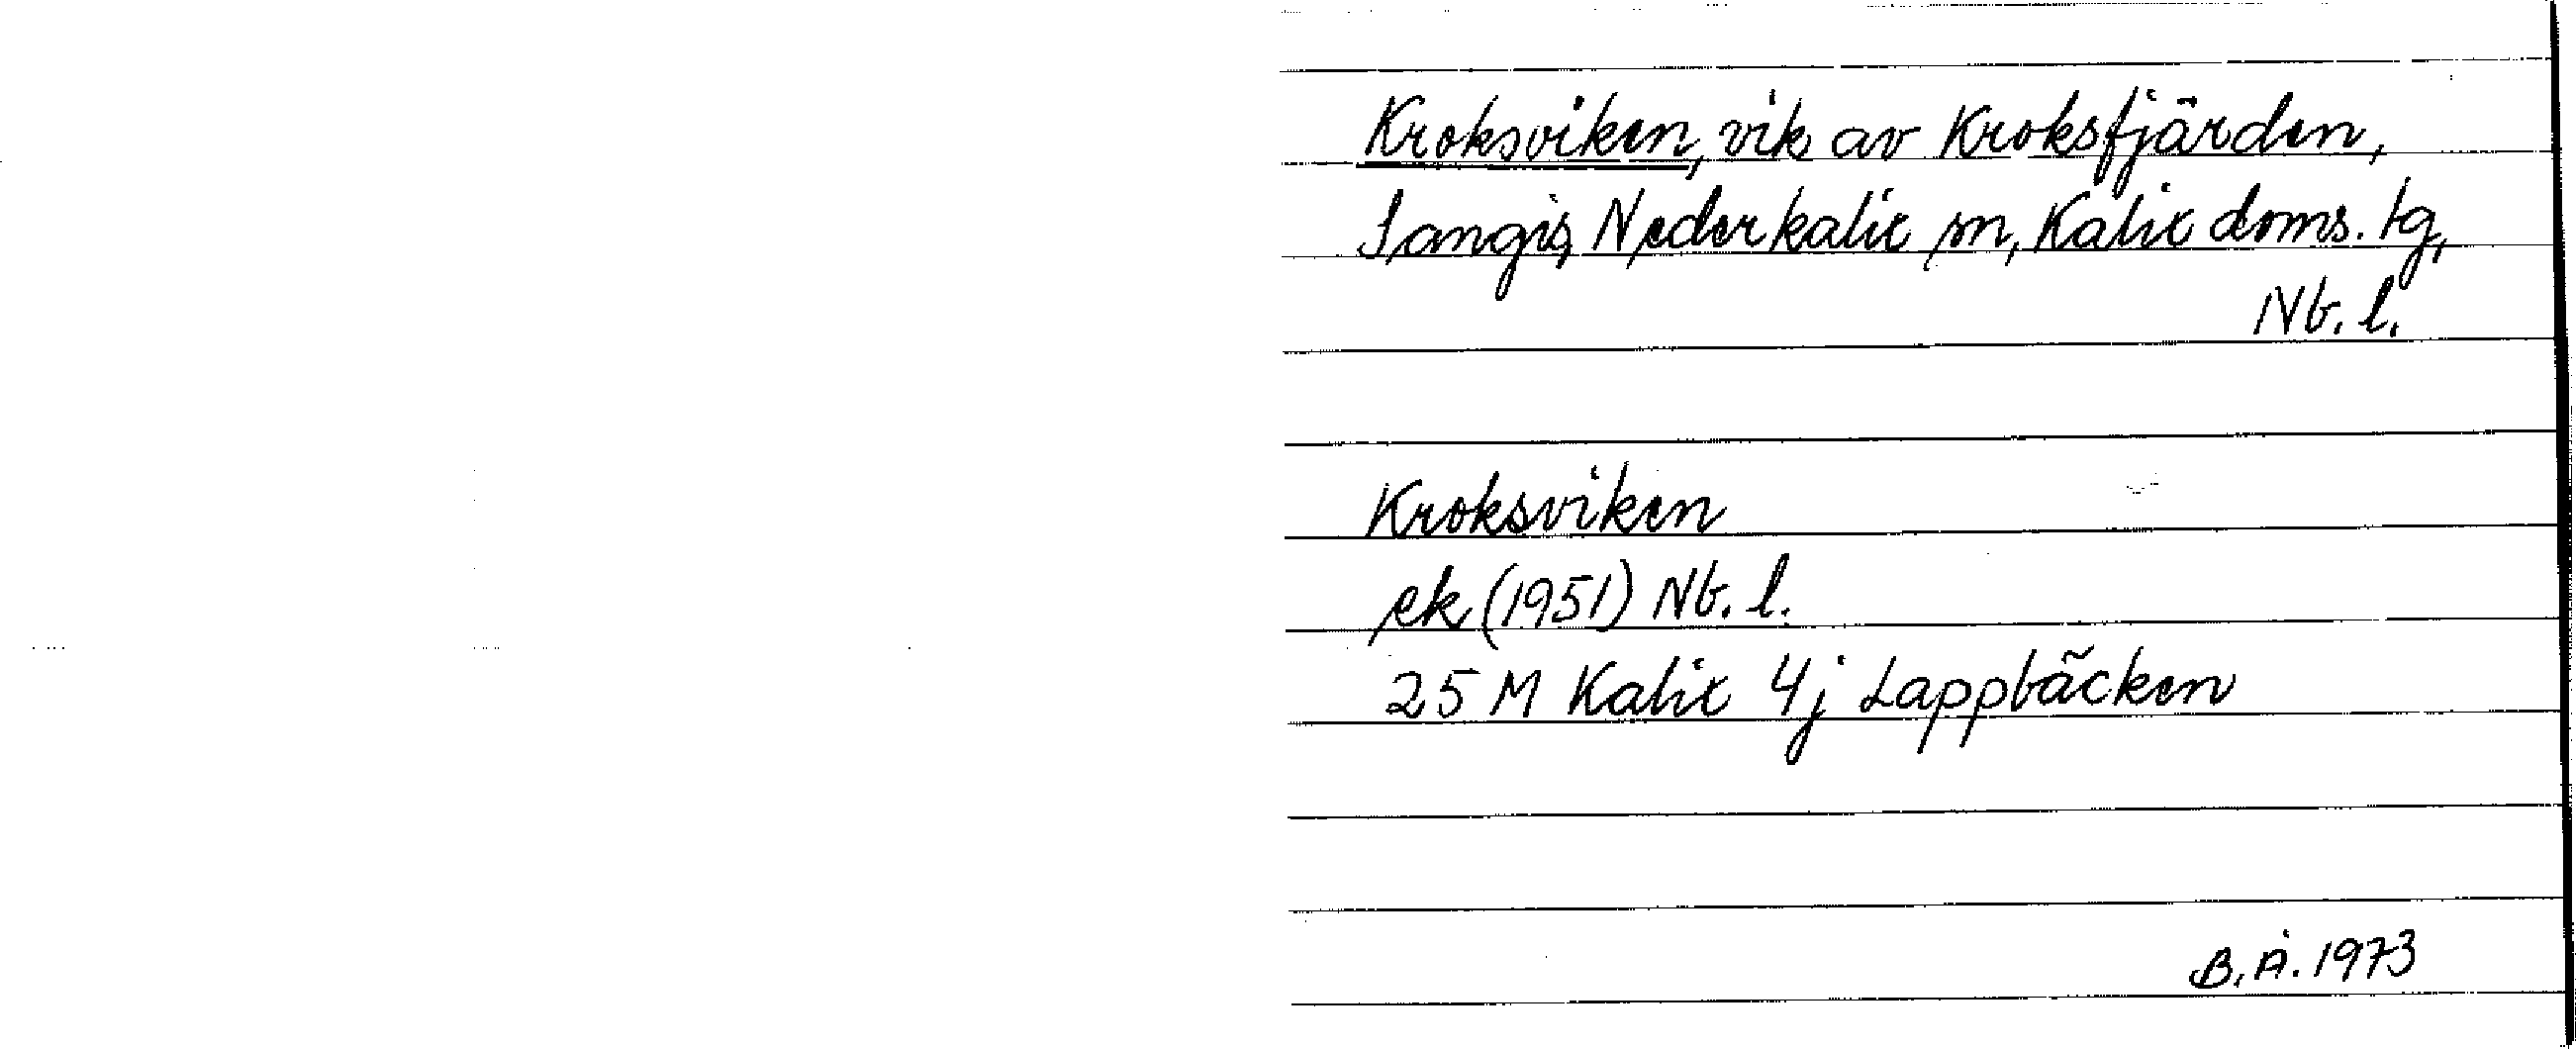 Kroksviken, vik av Kroksfjärden,
Sangis, Nederkalix sn, Kalix doms. tg,
Nb. l.
Kroksviken
ek (1951) Nb. l.
25 M Kalix 4j Lappbäcken
B. Å. 1973